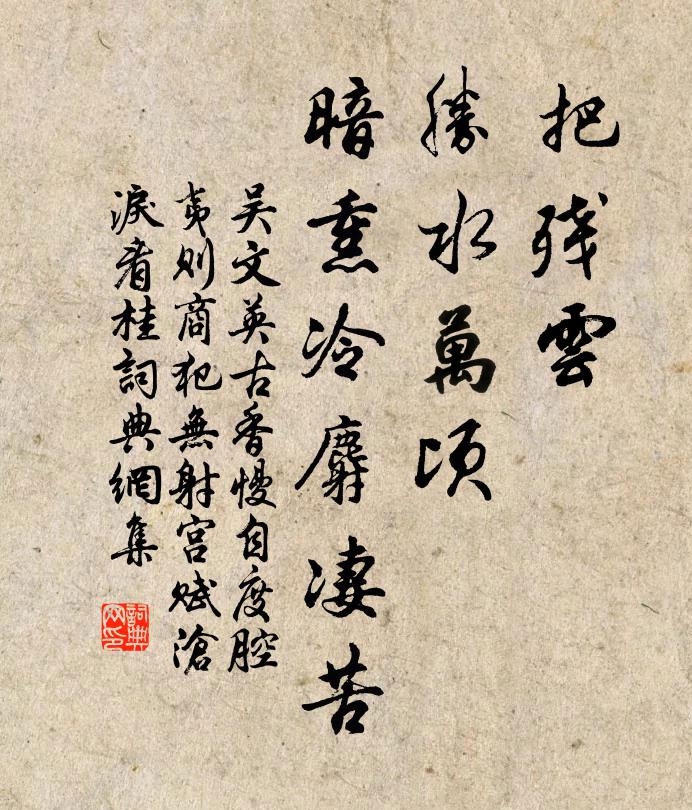 把残雲
勝水萬頃
暗熏冷麝凄苦
吴文英古香慢自度腔
夷則商犯無射宮賦滄
浪看桂詞典網集
詞典
网印